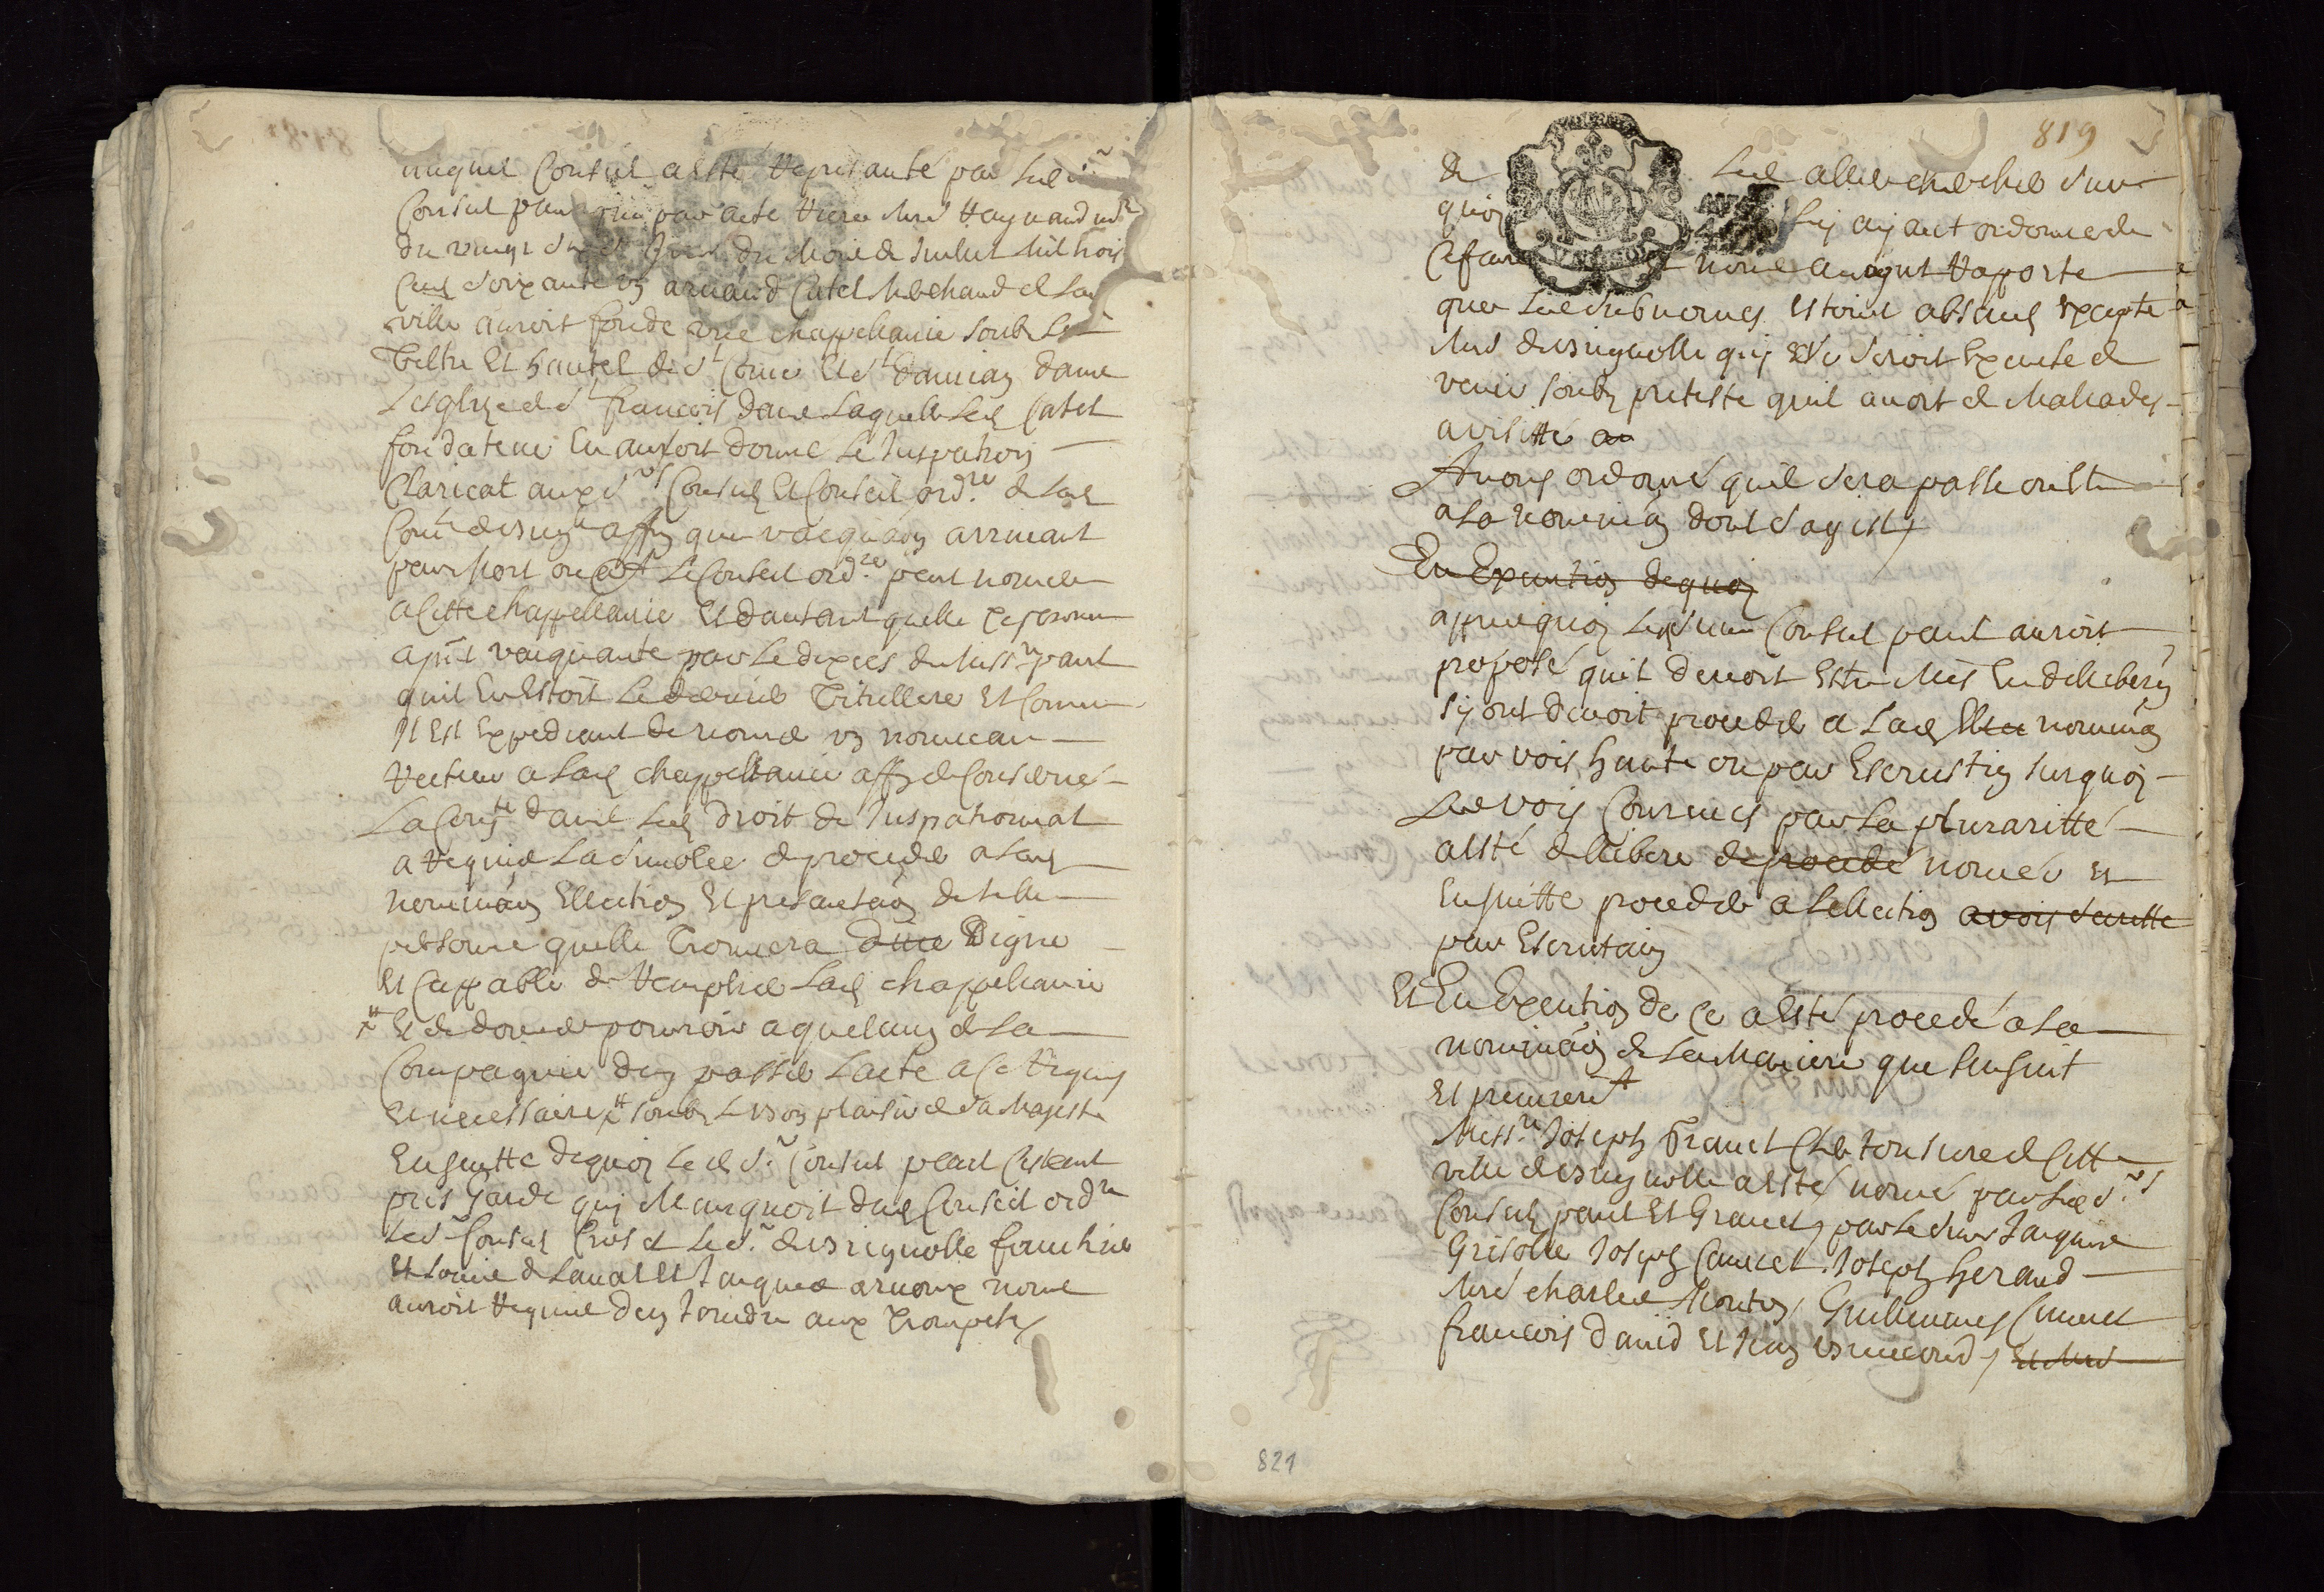 auquel Conseil a esté represanté par led sr
Consul que par acte Mre Raynaud nore
du vingt du Mois de Juillet Mil trois
Cens soixante un arnaud Catel Merchand de lad
ville auroit fonde une chappellanie soubz le
Tiltre Et hautel de St Come Et St damian dans
Lesglize de St francois dans laquelle led Catel
fondateur en auroit donné le Juspatron
Claricat aux srs Consulz Et Conseil ordre de lad
Comte affin que vacquaon arrivant
par Mort le Conseil ordre peut nommer
a Cette chappellanie Et dautant quelle se trouve
apnt vacquante par le dexces du Messre paul
quil En Estoit le dernier Titullere Et Comme
Il Est Expediant de nommer un nouveau
Recteur a lad chappellanie affin de Conserver
La Comte dans led droit de Juspatronnat
a requis lassemblee de proceder a lad
nominaon Ellection Et presantaon de telle
personne quelle Trouvera Digne
Et Cappable de Remplir lad chappellanie
Et de donner pouvoir a quelcung de la
Compagnie den passer lacte a Ce requis
Et necessaire soubz le bon plaisir de sa Majeste
Ensuitte dequoy led sr Consul paul Cestant
pris Garde quil Manquoit dud Conseil ordre
Led sr Consul Cros et le sr de brignolle
Et Louis de Laval Et Jacques arnoux nous
auroit requis den Joindre aux Trompetes
819
de les aller chercher sur
quoy luy ayant ordonne de
Ce faire nous auroint raporte
que les susnommes Estoint absans Excepté
Mre de brignolle qui se seroit Excuse de
venir soubz preteste quil avoit de Mallades
a visitté
Avons ordonné quil sera passe oultre
a la nominaon dont sagist
En Execution dequoy
appres quoy led sieur Consul paul auroit
propose quil devoit Estre Mis En delliberon
sy ont devoit proceder a lad nominaon
par voix haute ou par Escrustin surquoy
Les voix Courues par la pluraritté
a esté delibere de procede nomer Et
Ensuitte proceder a lellection
par Escrutain
Et En Execution de Ce a Esté procede a la
nominaon de la Maniere que sensuit
Et premieremt
Messre Joseph Granet Clerc tonsure de Cette
ville de brignolle a esté nomé par led srs
Consulz paul Et Granet, par le sieur Jacques
Grisolle Joseph Joseph heraud
Mre Charles Mouton, Guilleaumes
francois david Et Jean
821